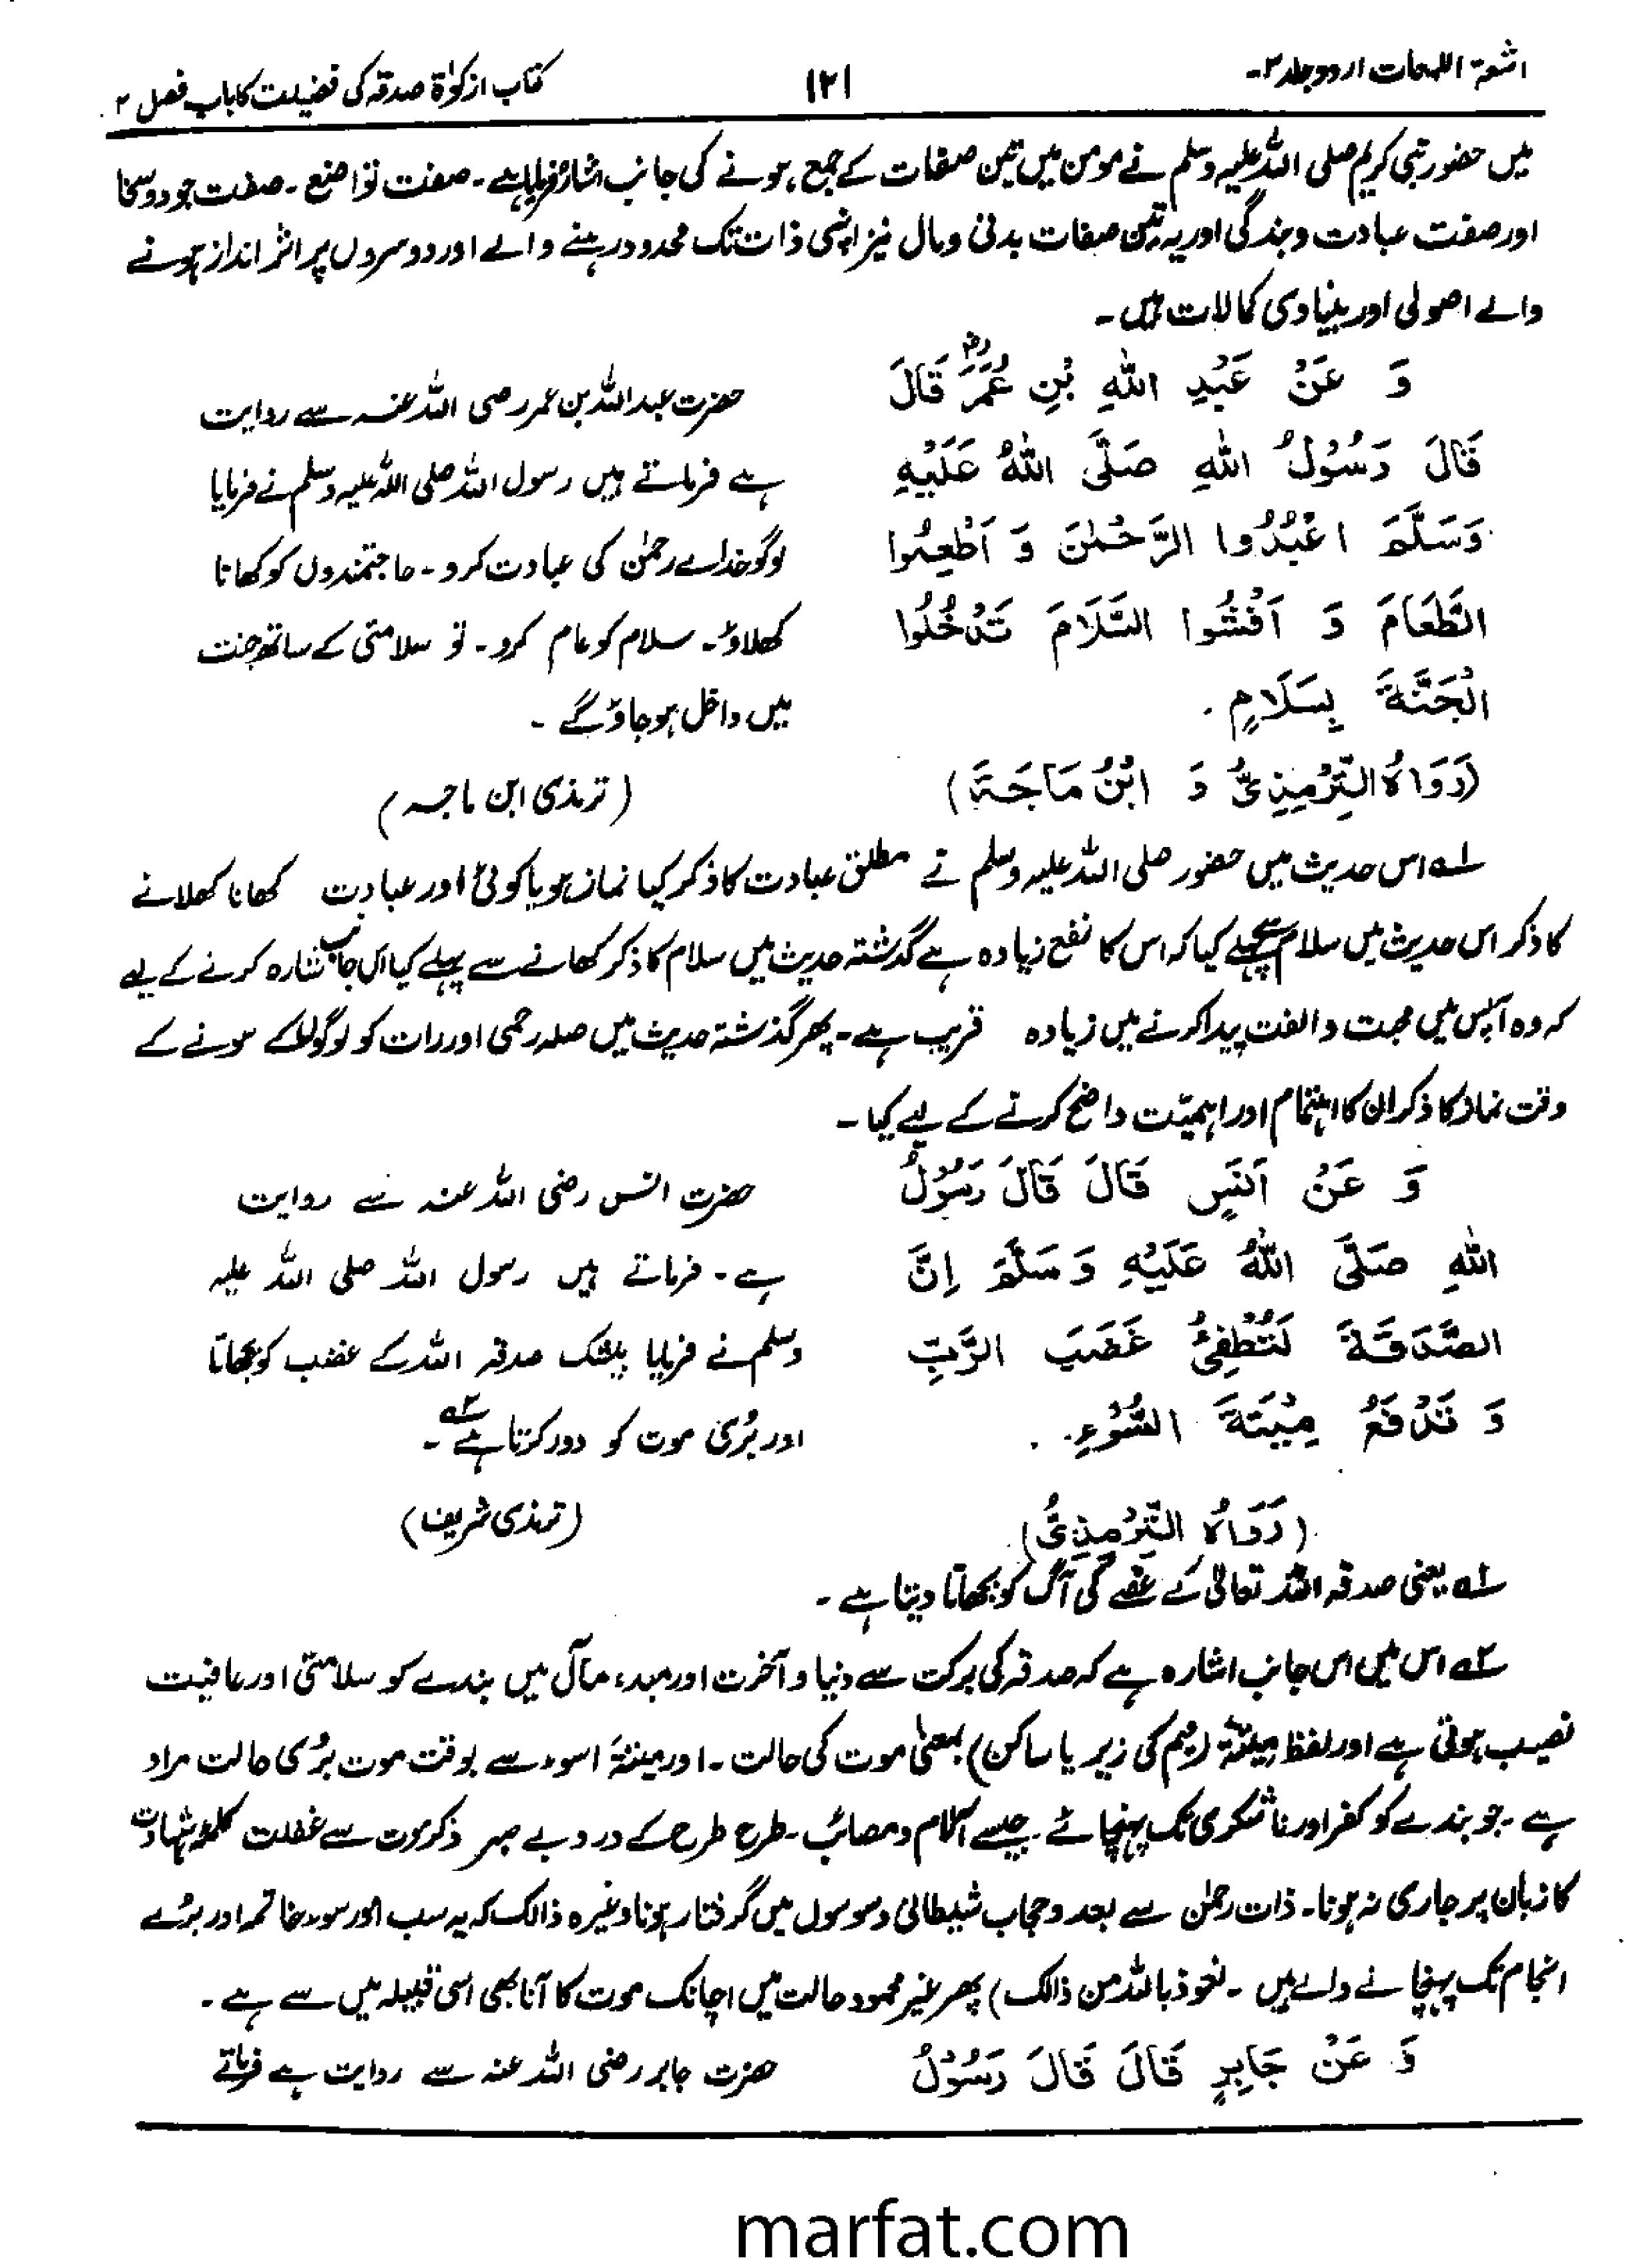 اشعۃ اللمعات اردو جلد ۳-
۱۲۱
کتاب ازکوٰۃ صدقہ کی فضیلت کا باب فصل ۲
میں حضور نبی کریم صلی اللہ علیہ وسلم نے مومن میں تین صفات کے جمع ہونے کی جانب اشارہ فرمایا ہے۔ صفت تواضع۔ صفت جود و سخا
اور صفت عبادت و بندگی اور یہ تین صفات بدنی و مالی نیز اپنی ذات تک محدود رہنے والے اور دوسروں پر اثر انداز ہونے
والے اصولی اور بنیادی کمالات ہیں۔
وَ عَنْ عَبْدِ اللهِ بْنِ عُمَرَ رض قَالَ
قَالَ رَسُوْلُ اللهِ صَلَّى اللهُ عَلَيْهِ
وَسَلَّمَ اعْبُدُوا الرَّحْمٰنَ وَ اَطْعِمُوا
الطَّعَامَ وَ اَفْشُوا السَّلَامَ تَدْخُلُوا
الْجَنَّةَ بِسَلَامٍ .
(رَوَاهُ التِّرْمِذِىُّ وَ ابْنُ مَاجَةَ)
حضرت عبداللہ بن عمر رضی اللہ عنہ سے روایت
ہے فرماتے ہیں رسول اللہ صلی اللہ علیہ وسلم نے فرمایا
لوگو خدائے رحمٰن کی عبادت کرو۔ حاجتمندوں کو کھانا
کھلاؤ۔ سلام کو عام کرو۔ تو سلامتی کے ساتھ جنت
میں داخل ہو جاؤ گے ۔
(ترمذی ابن ماجہ)
۱ے اس حدیث میں حضور صلی اللہ علیہ وسلم نے مطلق عبادت کا ذکر کیا نماز ہو یا کوئی اور عبادت کھانا کھلانے
کا ذکر اس حدیث میں سلام سے پہلے کیا کہ اس کا نفع زیادہ ہے گذشتہ حدیث میں سلام کا ذکر کھانے سے پہلے کیا اس جانب اشارہ کرنے کے لیے
کہ وہ آپس میں محبت و الفت پیدا کرنے میں زیادہ قریب ہے۔ پھر گذشتہ حدیث میں صلہ رحمی اور رات کو لوگوں کے سونے کے
وقت نماز کا ذکر ان کا اہتمام اور اہمیّت واضح کرنے کے لیے کیا ۔
وَ عَنْ اَنَسٍ قَالَ قَالَ رَسُوْلُ
اللهِ صَلَّى اللهُ عَلَيْهِ وَسَلَّمَ اِنَّ
الصَّدَقَةَ لَتُطْفِئُ غَضَبَ الرَّبِّ
وَ تَدْفَعُ مِيْتَةَ السُّوْءِ .
(رَوَاهُ التِّرْمِذِىُّ)
حضرت انس رضی اللہ عنہ سے روایت
ہے۔ فرماتے ہیں رسول اللہ صلی اللہ علیہ
وسلم نے فرمایا بیشک صدقہ اللہ کے غضب کو بجھاتا
اور بُری موت کو دور کرتا ہے ۲ے ۔
(ترمذی شریف)
۱ے یعنی صدقہ اللہ تعالیٰ کے غصے کی آگ کو بجھاتا دیتا ہے ۔
۲ے اس میں اس جانب اشارہ ہے کہ صدقہ کی برکت سے دنیا و آخرت اور مبدء مآل میں بندے کو سلامتی اور عافیت
نصیب ہوتی ہے اور لفظ میتۃ (میم کی زیر یا ساکن) بمعنیٰ موت کی حالت ۔ اور میتۃ اسوء سے بوقت موت بُری حالت مراد
ہے۔ جو بندے کو کفر اور ناشکری تک پہنچائے۔ جیسے آلام و مصائب۔ طرح طرح کے درد بے صبر ذکر موت سے غفلت کلمۂ شہادت
کا زبان پر جاری نہ ہونا۔ ذات رحمٰن سے بعد و حجاب شیطانی وسوسوں میں گرفتار ہونا وغیرہ ذالک کہ یہ سب امور سوء خاتمہ اور بُرے
انجام تک پہنچانے والے ہیں ۔ نعوذ باللہ من ذالک) پھر غیر محمود حالت میں اچانک موت کا آنا بھی اسی قبیلہ میں سے ہے ۔
وَ عَنْ جَابِرٍ قَالَ قَالَ رَسُوْلُ
حضرت جابر رضی اللہ عنہ سے روایت ہے فرماتے
marfat.com